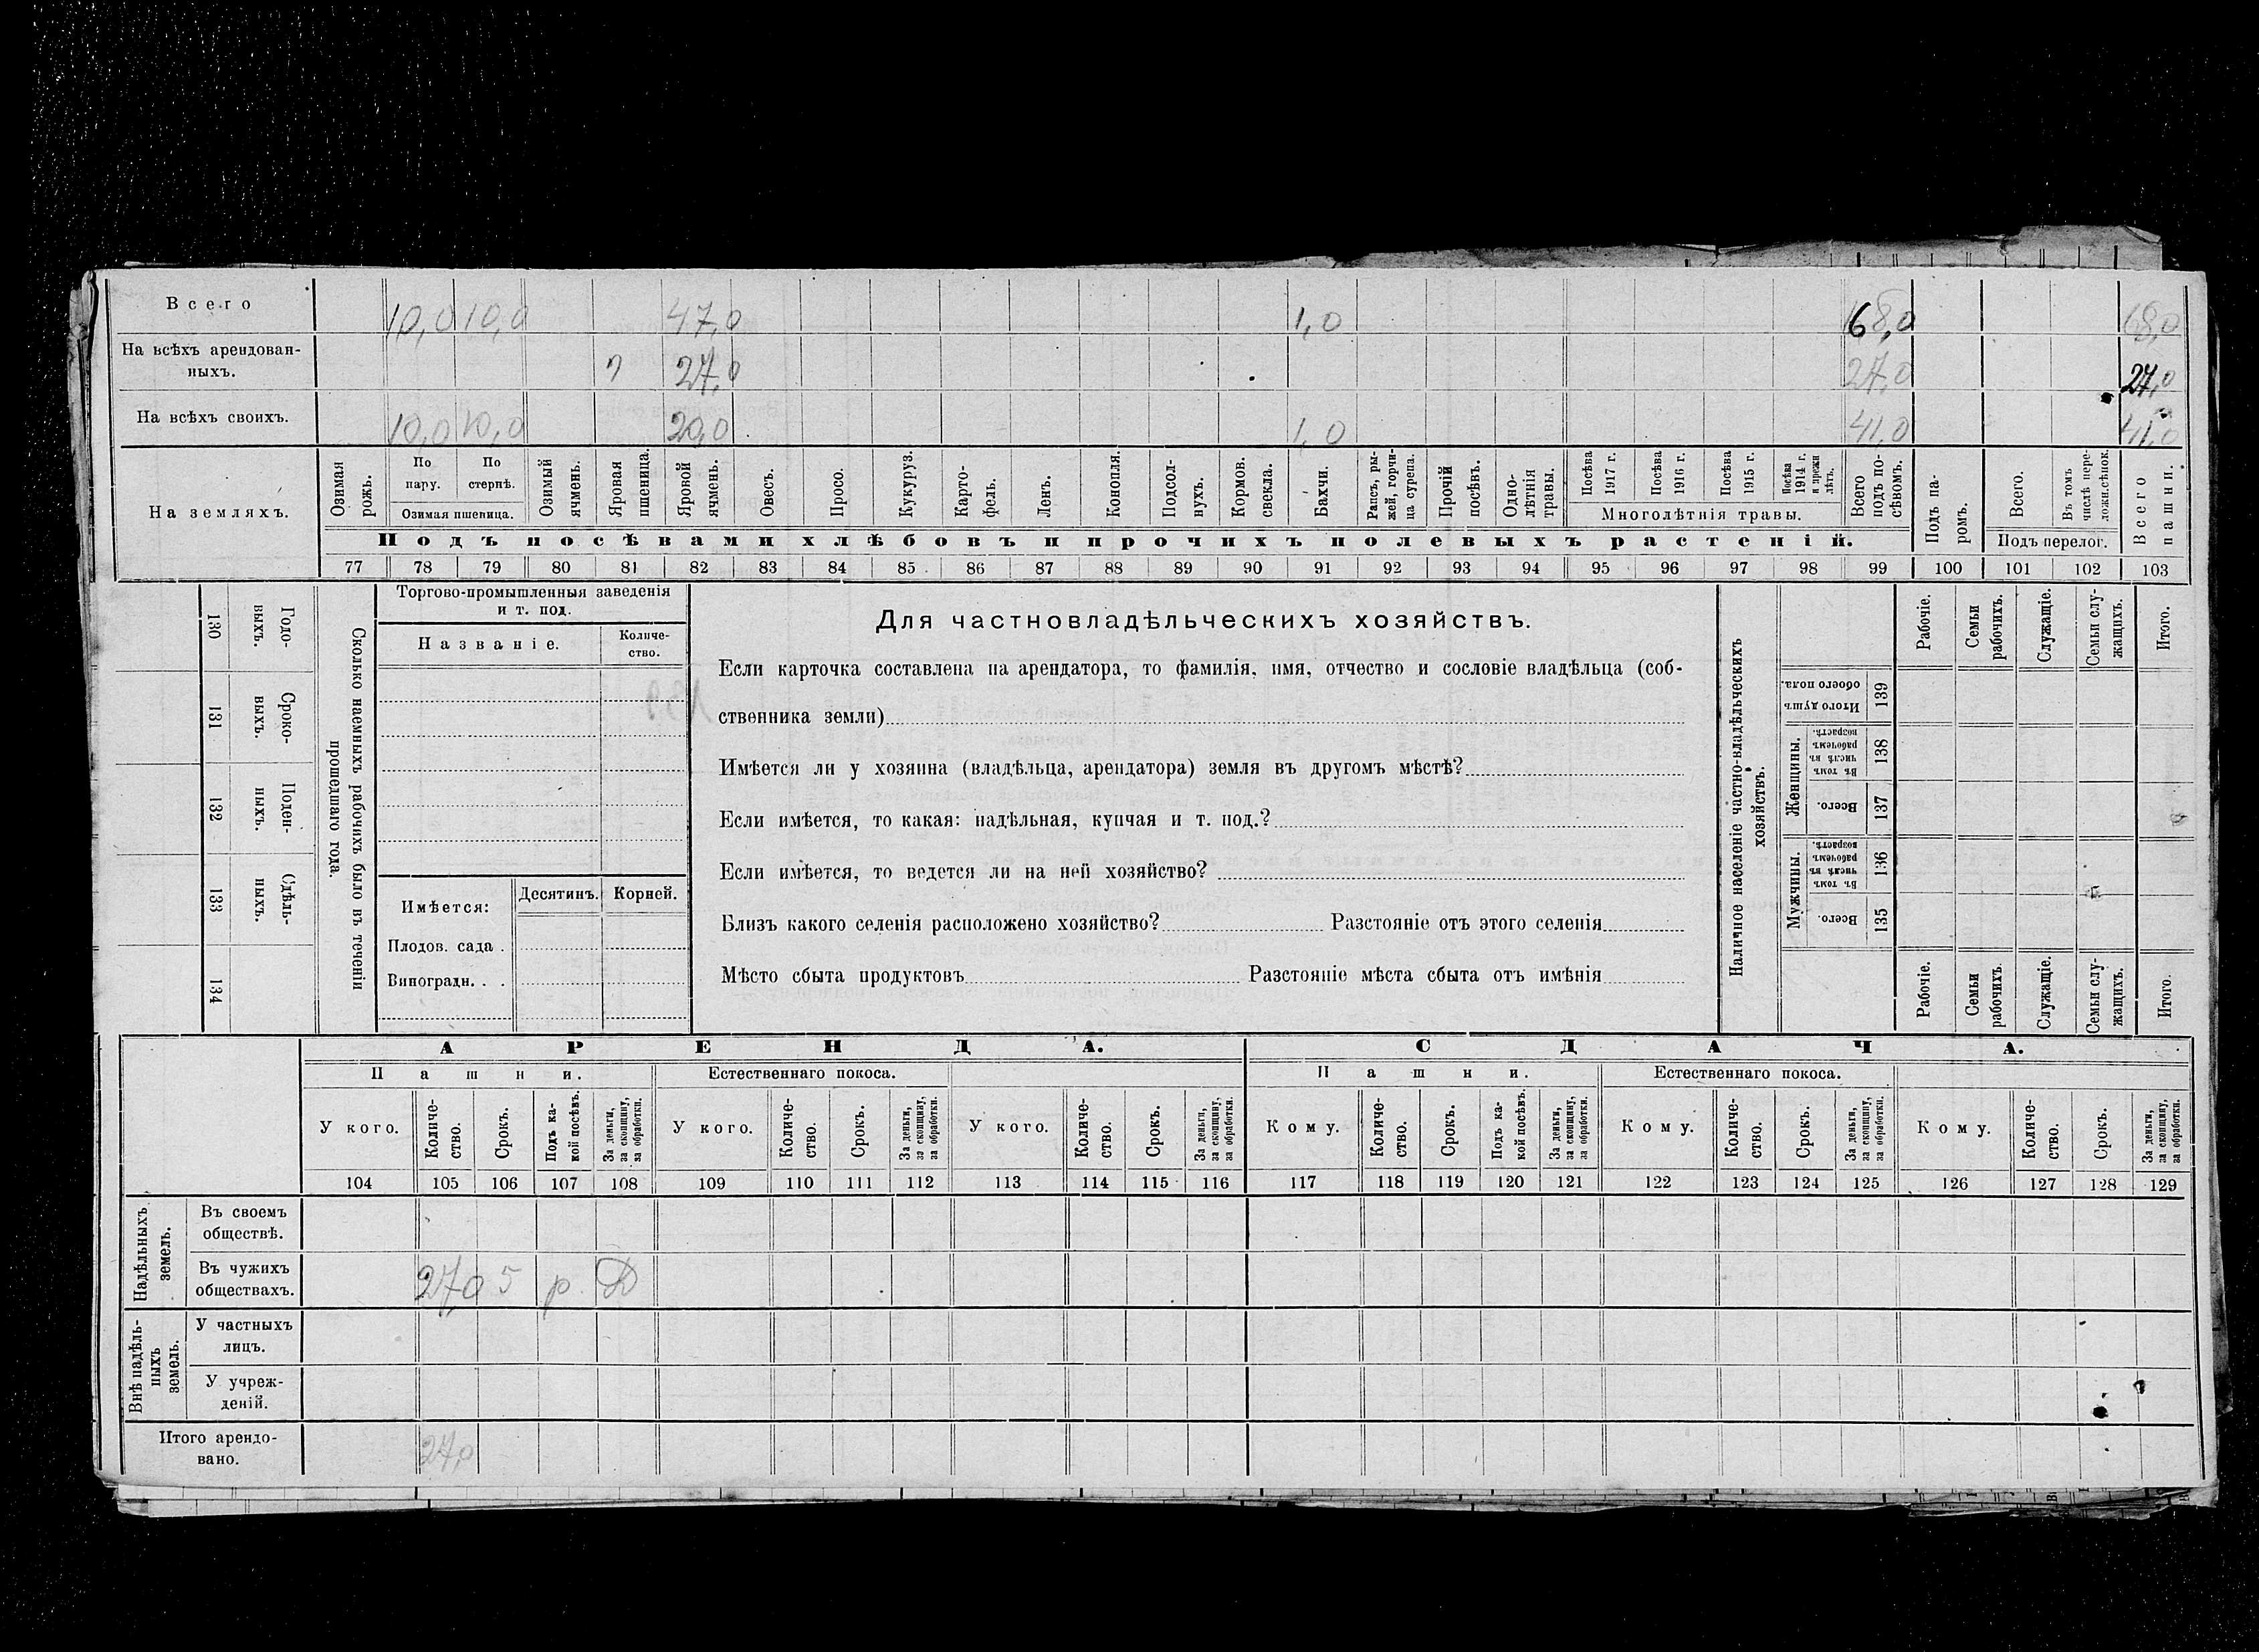 Всего 10,0 10,0 47,0 1,0 68,0 68,0
На всѣхъ арендован-
ныхъ. 27,0 27,0 27,0
На всѣхъ своихъ. 10,0 10,0 20,0 1,0 41,0 41,0
На земляхъ.
Озимая рожь.
По пару.
По стернѣ.
Озимая пшеница.
Озимый ячмень.
Яровая пшеница.
Яровой ячмень.
Овесъ.
Просо.
Кукуруз.
Карто-
фель.
Ленъ.
Конопля.
Подсол-
нухъ.
Кормов. свекла.
Бахчи.
Рапсъ, ры-
жей, горчи-
ца сурепа.
Прочій посѣвъ.
Одно-
лѣтнія травы.
Посѣва 1917 г.
Посѣва 1916 г.
Посѣва 1915 г.
Посѣва 1914 г. и прежн лѣтъ.
Многолѣтнія травы.
Всего подъ по-
сѣвомъ.
Подъ па-
ромъ.
Всего.
Въ томъ числѣ пере-
ложн.сѣнок.
Подъ перелог.
Всего пашни.
Подъ посѣвами хлѣбовъ и прочихъ полевыхъ растеній.
77 78 79 80 81 82 83 84 85 86 87 88 89 90 91 92 93 94 95 96 97 98 99 100 101 102 103
130 Годо-
выхъ.
131 Сроко-
выхъ.
132 Поден-
ныхъ.
133 Сдѣль-
ныхъ.
134
Сколько наемныхъ рабочихъ было въ теченіи
прошедшаго года.
Торгово-промышленныя заведенія
и т. под.
Названіе.
Количе-
ство.
Имѣется:
Десятинъ. Корней.
Плодов. сада .
Виноградн. . .
Для частновладѣльческихъ хозяйствъ.
Если карточка составлена на арендатора, то фамилія, имя, отчество и сословіе владѣльца (соб-
ственника земли)
Имѣется ли у хозяина (владѣльца, арендатора) земля въ другомъ мѣстѣ?
Если имѣется, то какая: надѣльная, купчая и т. под.?
Если имѣется, то ведется ли на ней хозяйство?
Близъ какого селенія расположено хозяйство? Разстояніе отъ этого селенія
Мѣсто сбыта продуктовъ Разстояніе мѣста сбыта отъ имѣнія
Наличное населеніе частно-владѣльческихъ
хозяйствъ.
Рабочіе.
Семьи рабочихъ.
Служащіе.
Семьи слу-
жащихъ.
Итого.
Итого душъ обоего пола. 139
Женщины.
Въ томъ числѣ въ рабочемъ возрастѣ. 138
Всего. 137
Мужчины.
Въ томъ числѣ въ рабочемъ возрастѣ. 136
Всего. 135
Рабочіе.
Семьи рабочихъ.
Служащіе.
Семьи слу-
жащихъ.
Итого.
АРЕНДА. СДАЧА.
Пашни. Естественнаго покоса. Пашни. Естественнаго покоса.
У кого.
Количе-
ство.
Срокъ.
Подъ ка-
кой посѣвъ.
За деньги, за скопщину, за обработки.
У кого.
Количе-
ство.
Срокъ.
За деньги, за скопщину, за обработки.
У кого.
Количе-
ство.
Срокъ.
За деньги, за скопщину, за обработки.
Кому.
Количе-
ство.
Срокъ.
Подъ ка-
кой посѣвъ.
За деньги, за скопщину, за обработки.
Кому.
Количе-
ство.
Срокъ.
За деньги, за скопщину, за обработки.
Кому.
Количе-
ство.
Срокъ.
За деньги, за скопщину, за обработки.
104 105 106 107 108 109 110 111 112 113 114 115 116 117 118 119 120 121 122 123 124 125 126 127 128 129
Надѣльныхъ земель.
Въ своемъ
обществѣ.
Въ чужихъ
обществахъ. 27,0 5 р Д
Внѣ надѣль-
ныхъ земель.
У частныхъ
лицъ.
У учреж-
деній.
Итого арендо-
вано. 27,0